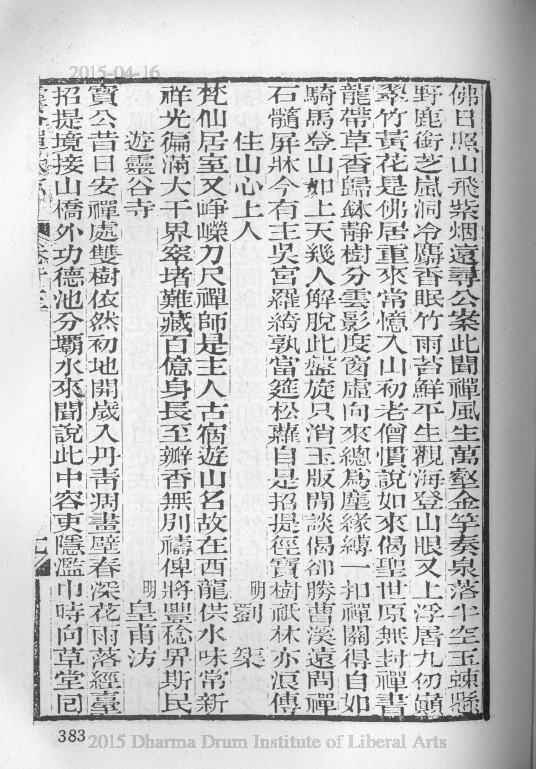 2015-04-16
佛日照山飛紫烟遠尋公案此聞禪風生萬壑金竽奏泉落半空玉竦懸
野鹿銜芝嵐洞冷麝香眠竹雨苔鮮平生觀海登山眼又上浮屠九仞顛
翠竹黃花是佛居重來常憶入山初老僧慣說如來偈聖世原無封禪書
龍帶草香歸鉢靜樹分雲影度窗虛向來總爲塵緣縛一扣禪關得自如
騎馬登山如上天幾人解脫此盤旋只消玉版開談偈卻勝曹溪遠問禪
石髓屏牀今有主吳宮羅綺孰當筵松蘿自是招提徑寶樹祇林亦浪傳
住山心上人 明 劉榘
梵仙居室又崢嶸刀尺禪師是主人古宿遊山名故在西龍供水味常新
祥光徧滿大千界窣堵難藏百億身長至瓣香無別禱俾將豐稔畀斯民
遊靈谷寺 明 皇甫汸
寶公昔日安禪處雙樹依然初地開歲入丹靑凋畵壁春深花雨落經臺
招提境接山橋外功德池分灞水來聞說此中容吏隱濫巾時向草堂回
383
2015 Dharma Drum Institute of Liberal Arts